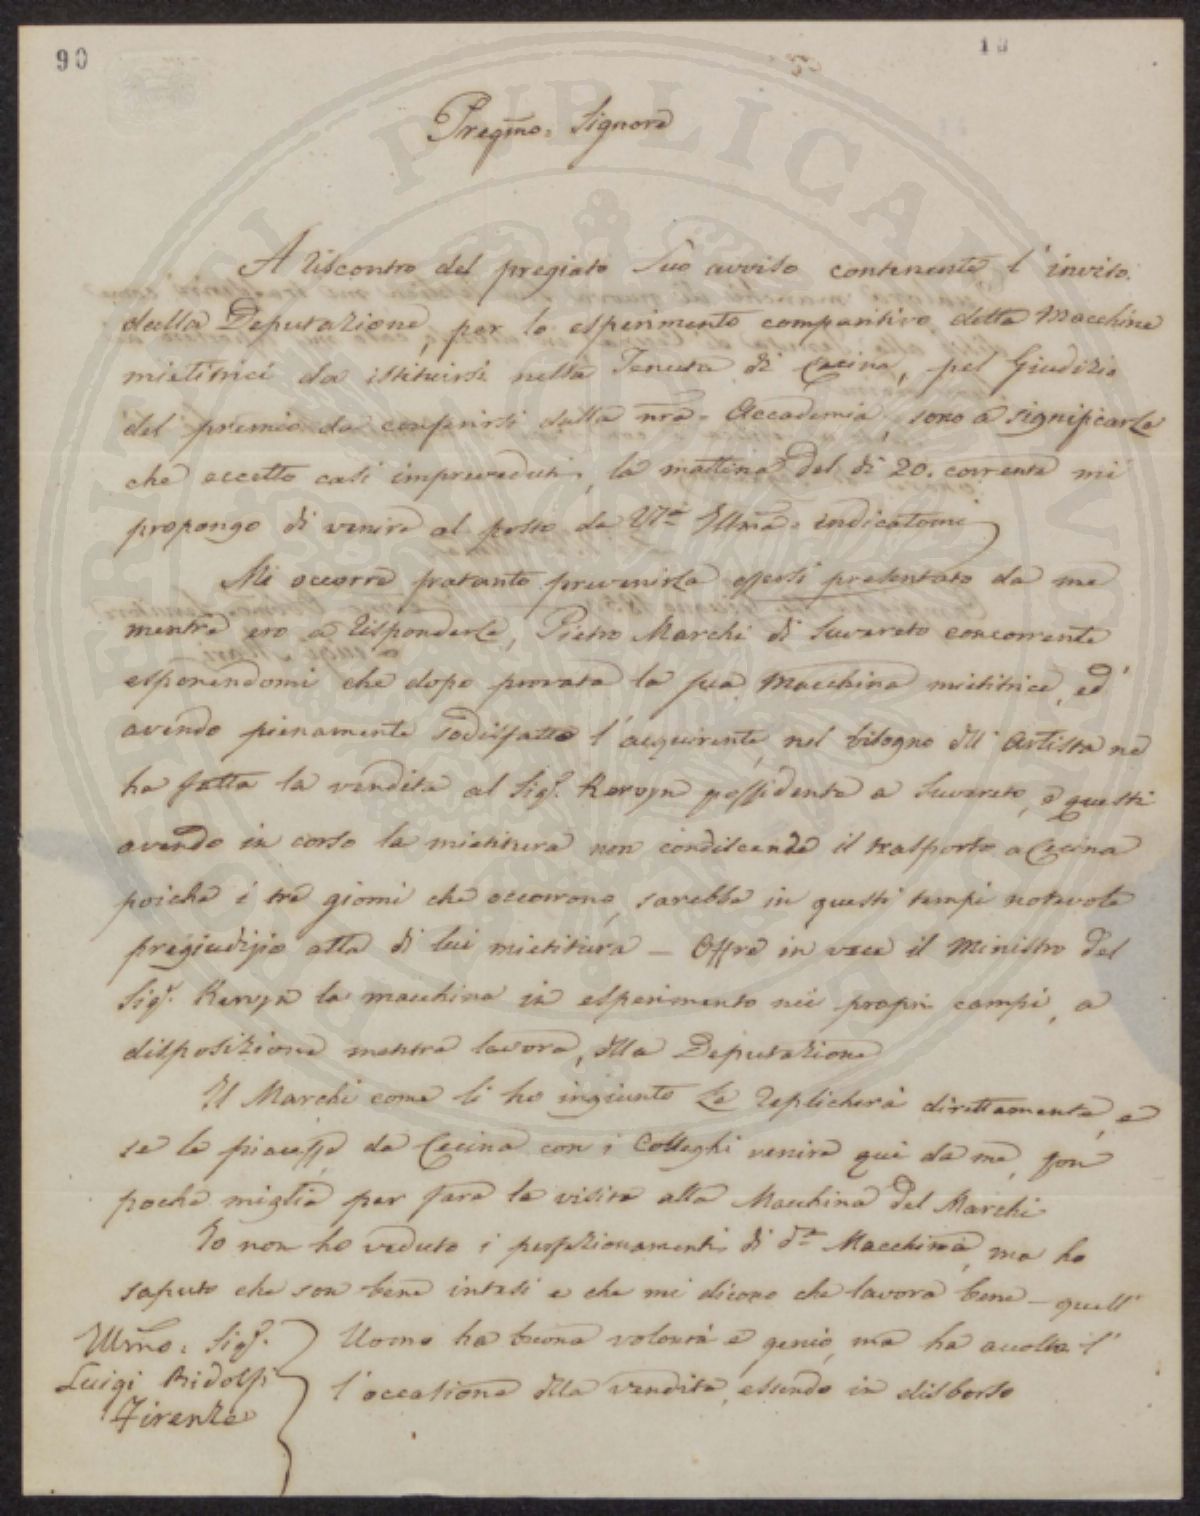 90
10
Pregmo. Signore
A riscontro del pregiato Suo avviso contenente l'invito
della Deputazione, per lo esperimento comparitivo delle Macchine
mietitrici da istituirsi nella Tenuta di Cecina, pel Giudizio
del premio da conferirsi dalla nra. Accademia, sono a significarLe
che eccetto casi impreveduti, la mattina del dì 20. corrente mi
propongo di venire al posto da VSa. Illma. indicatomi
Mi occorre pertanto prevenirLa essersi presentato da me
mentre ero a risponderLe, Pietro Marchi di Suvereto concorrente
esponendomi che dopo provata la sua Macchina mietitrice, ed
avendo pienamente sodisfatto l'acquirente, nel bisogno dell'Artista ne
ha fatta la vendita al Sigr. Kervyn possidente a Suvereto, e questi
avendo in corso la mietitura non condiscende il trasporto a Cecina
poiche i tre giorni che occorrono, sarebbe in questi tempi notevole
pregiudizio alla di lui mietitura — Offre in vece il Ministro del
Sigr. Kervyn la macchina in esperimento nei propri campi, a
disposizione mentre lavora, della Deputazione
Il Marchi come li ho ingiunto Le replicherà direttamente, e
se le piacesse da Cecina con i Colleghi venire quì da me, son
poche miglia per fare la visita alla Macchina del Marchi
Io non ho veduto i perfezionamenti di da. Macchina, ma ho
saputo che son bene intesi e che mi dicono che lavora bene — quell'
Uomo ha buona volontà e genio, ma ha accolta l'
l'occasione della vendita, essendo in disborso
Illmo. Sigr.
Luigi Ridolfi
Firenze